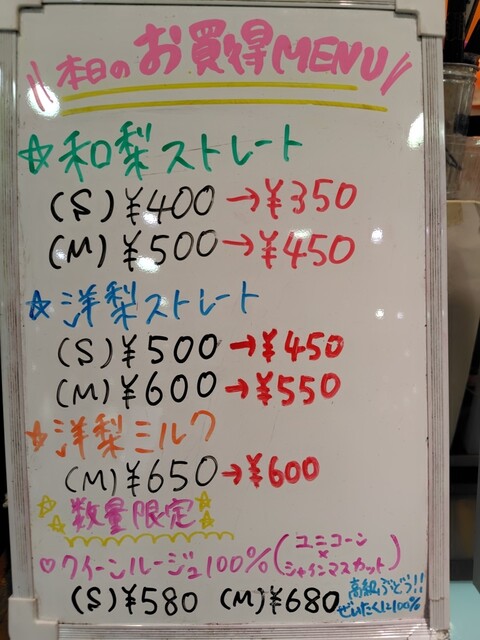 本日のお買得MENU
☆和梨ストレート
(S)¥400→¥350
(M)¥500→¥450
☆洋梨ストレート
(S)¥500→¥450
(M)¥600→¥550
☆洋梨ミルク
(M)¥650→¥600
数量限定
♡クイーンルージュ100%(ユニコーン×シャインマスカット)
(S)¥580 (M)¥680
高級ぶどう!!
ぜいたくに100%